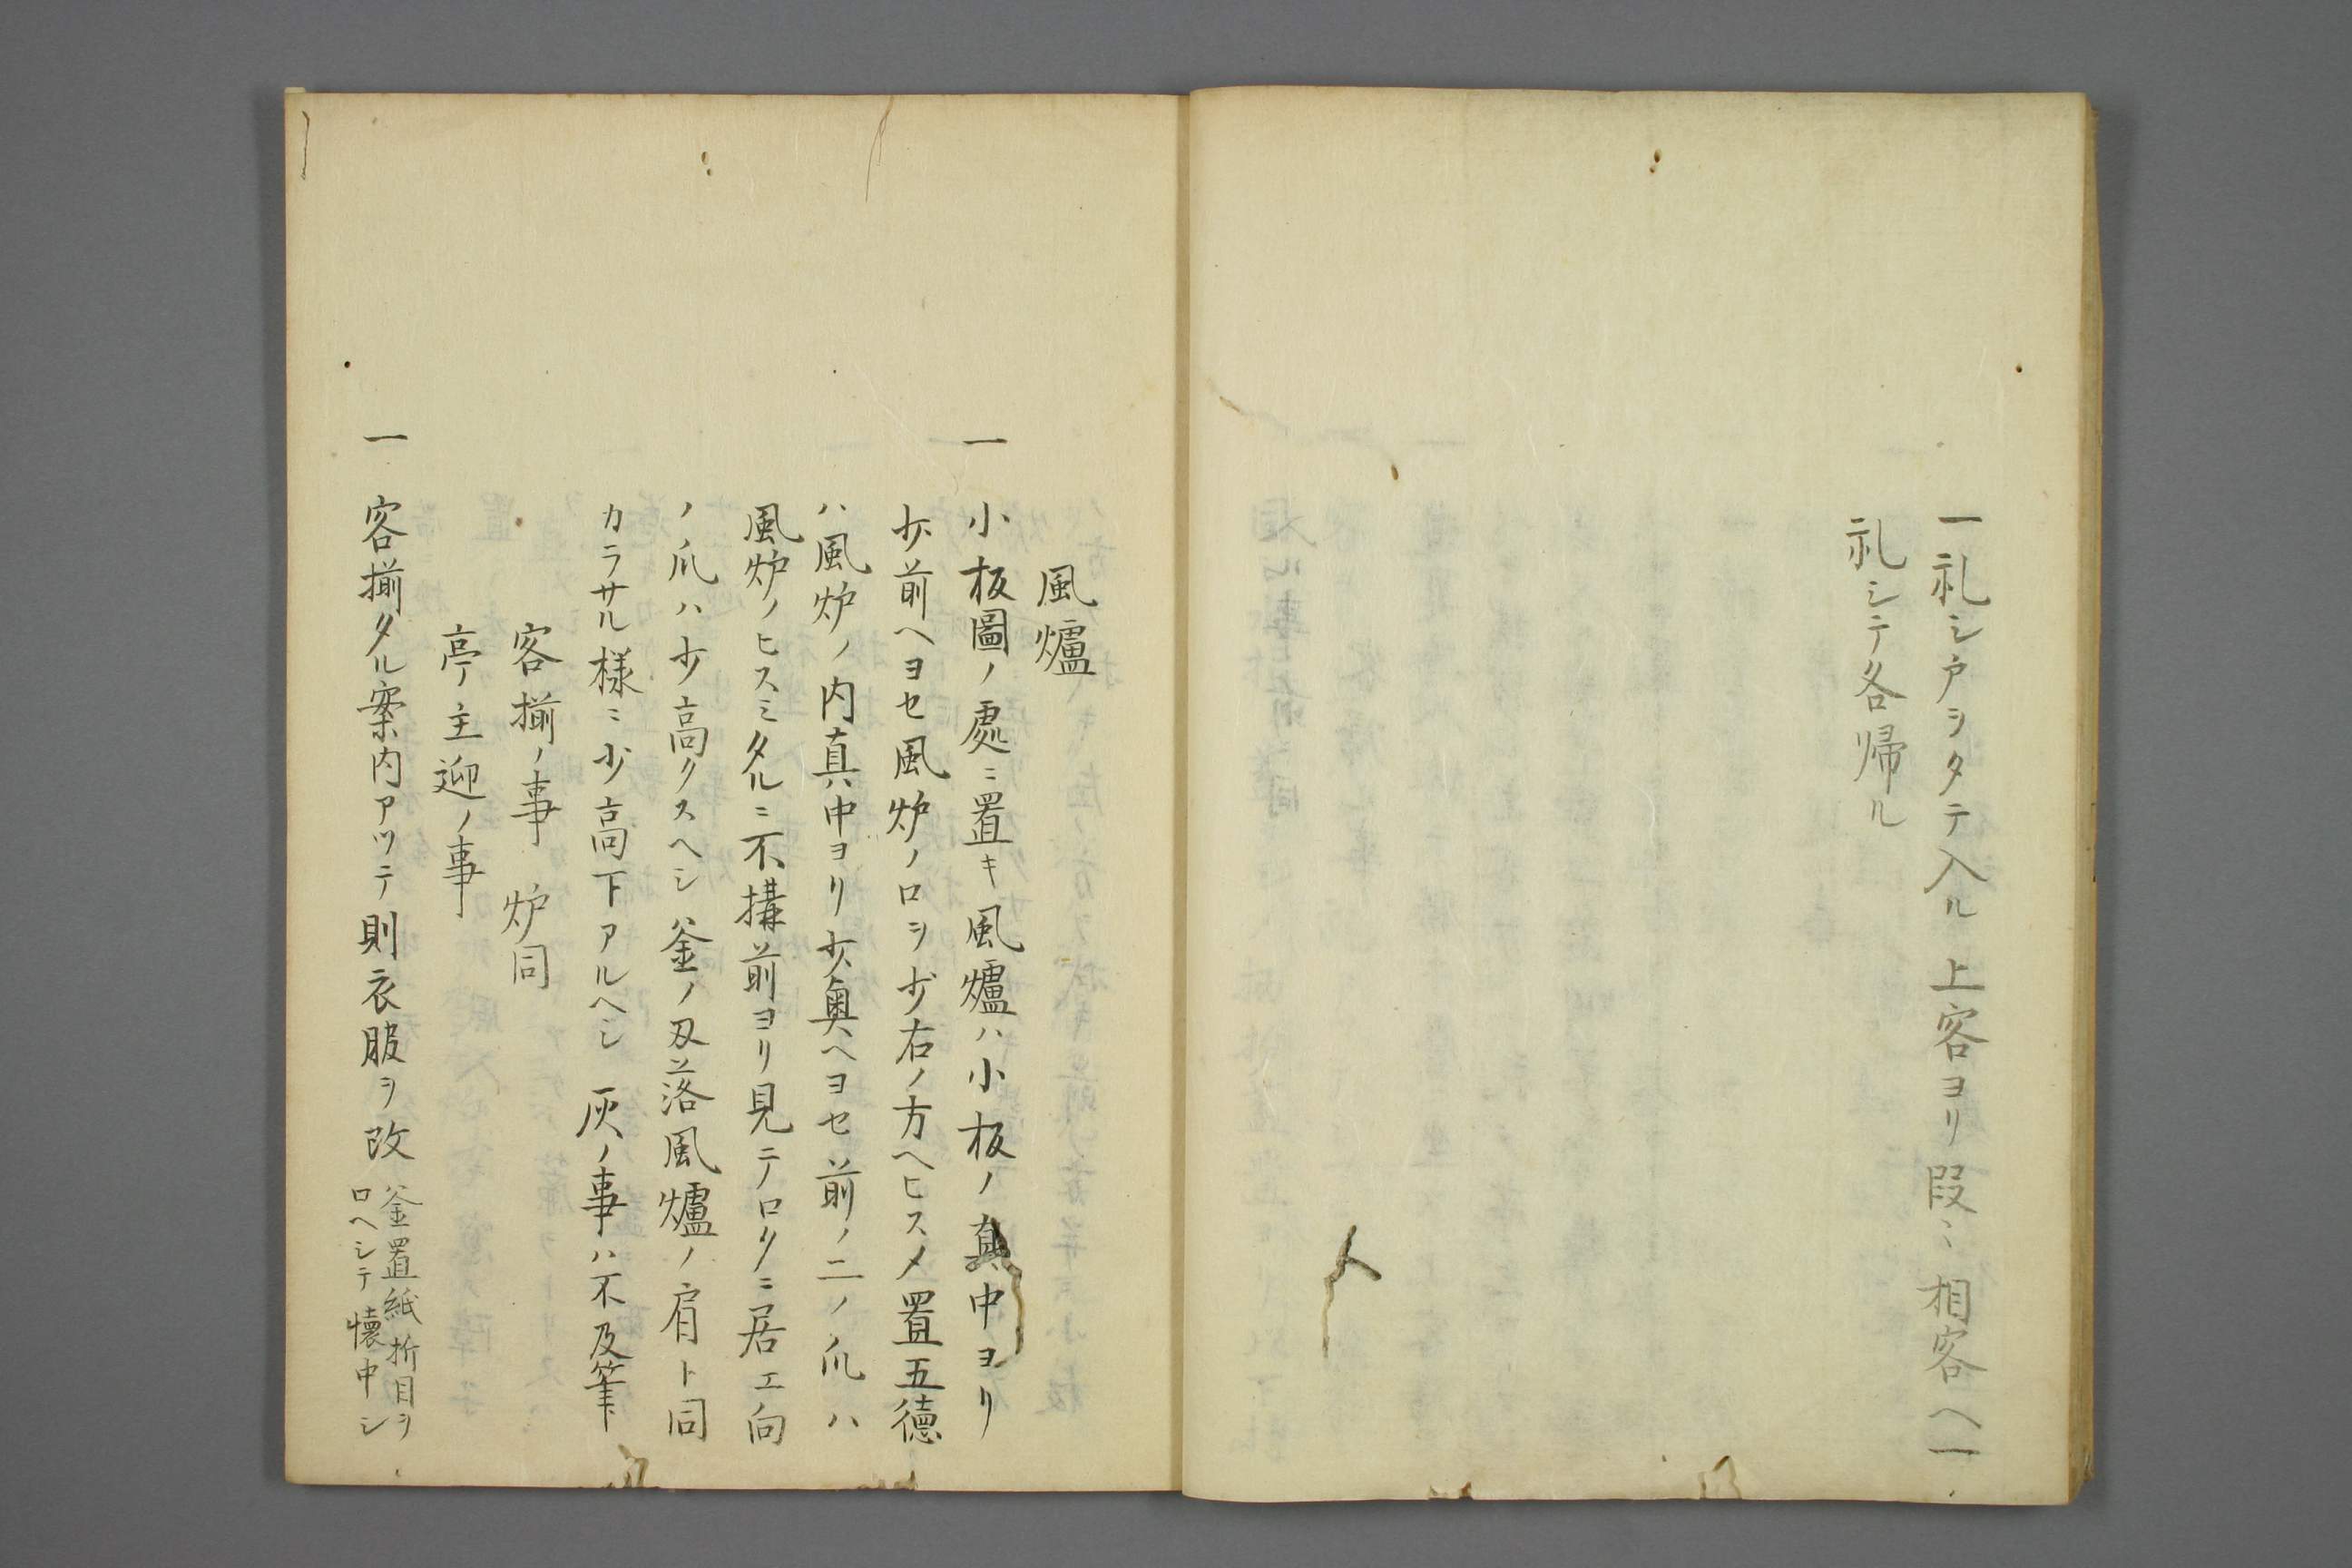 一礼シ戸ヲタテ入ル上客ヨリ段〻相客ヘ一
礼シテ各帰ル
風爐
一小板圖ノ處ニ置キ風爐ハ小板ノ真中ヨリ
少前ヘヨセ風炉ノロヲ少右ノ方ヘヒスメ置五徳
ハ風炉ノ内真中ヨリ少奥ヘヨセ前ノ二ノ爪ハ
風炉ノヒスミタルニ不構前ヨリ見テロクニ居エ向
ノ爪ハ少高クスヘシ釜ノ刄落風爐ノ肩ト同
カラサル様ニ少高下アルヘシ灰ノ事ハ不及筆
客揃ノ事 炉同
亭主迎ノ事
一客揃タル案内アツテ則衣服ヲ改
釜置紙折目ヲ
口ヘシテ懐中シ